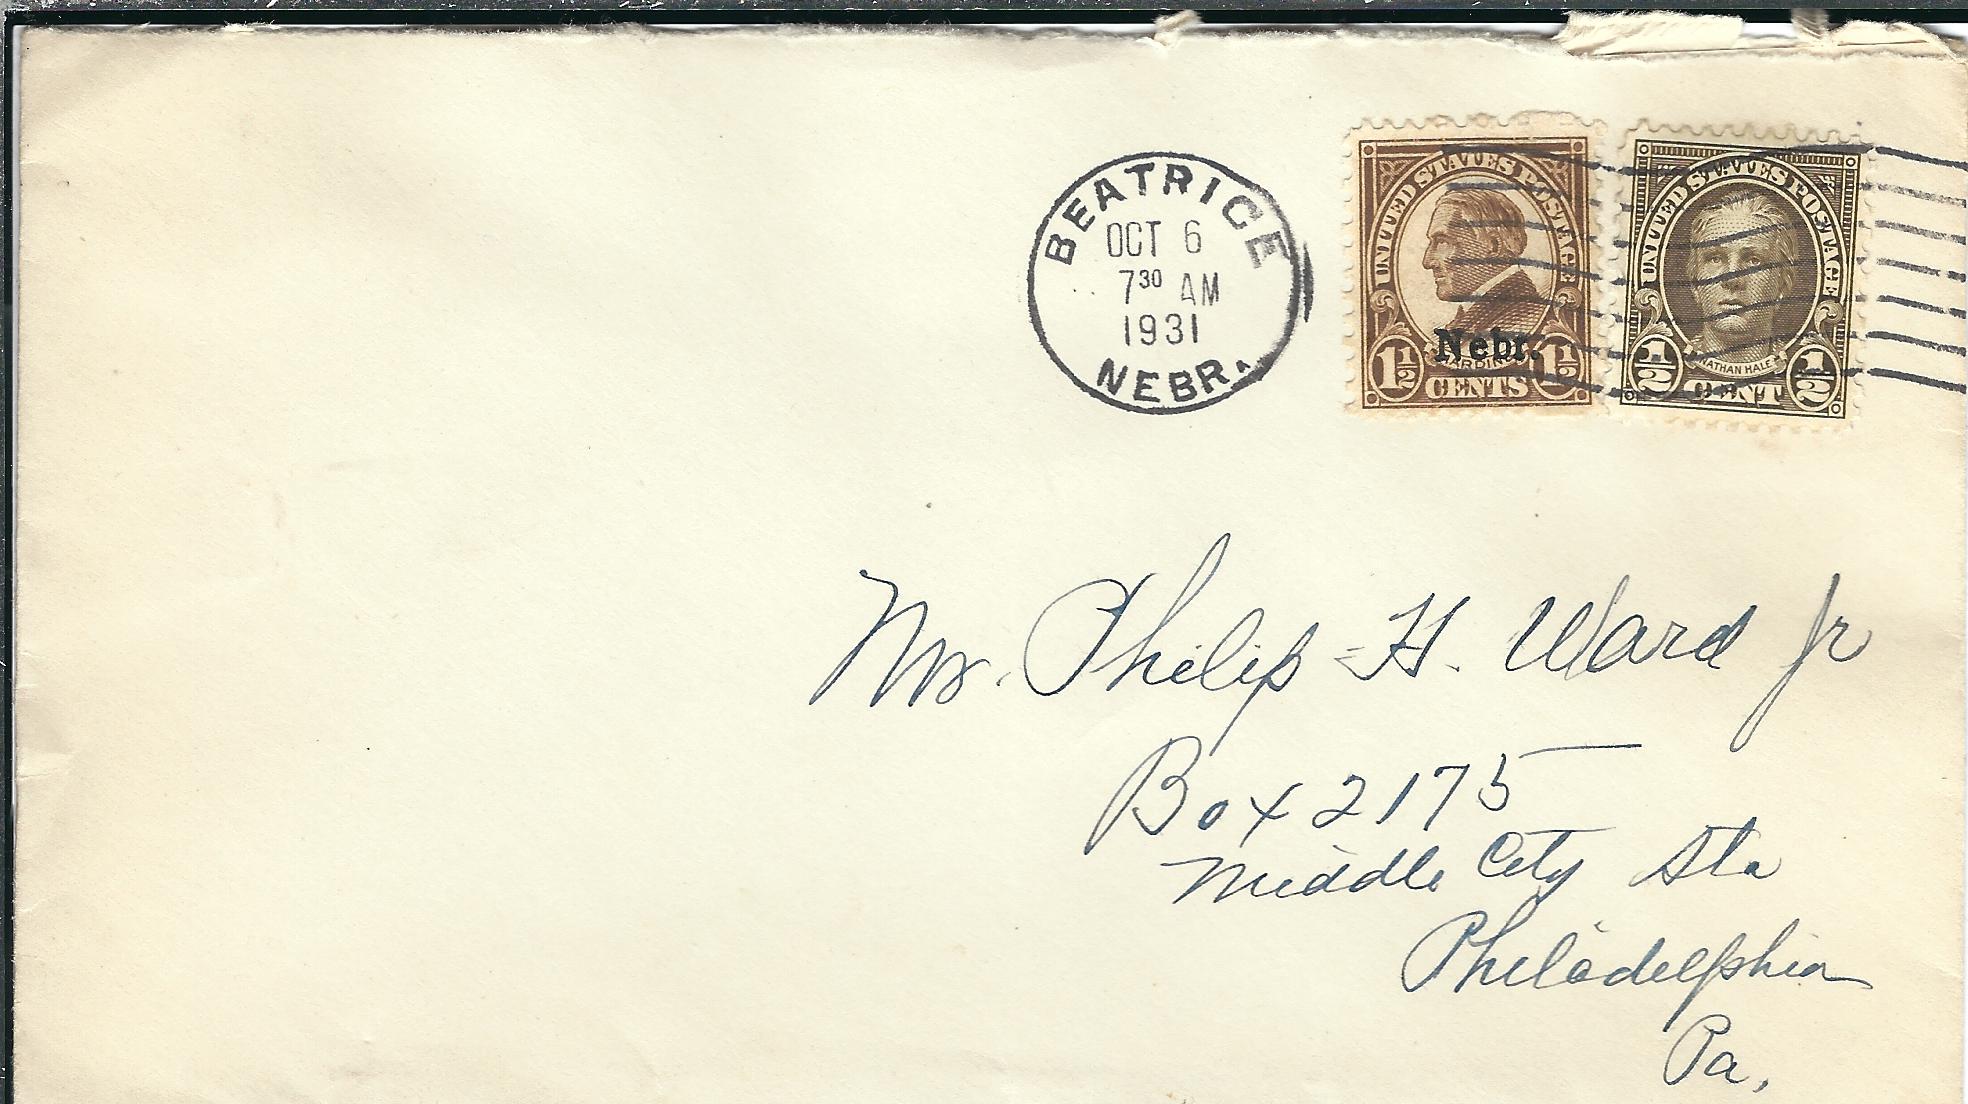 BEATRICE
OCT 6
7 30 AM
1931
NEBR.
UNITED STATES POSTAGE
Nebr.
HARDING
1 1/2 CENTS 1 1/2
UNITED STATES POSTAGE
NATHAN HALE
1/2 CENT 1/2
Mr. Philip H. Ward Jr
Box 2175
Middle City Sta
Philadelphia
Pa.